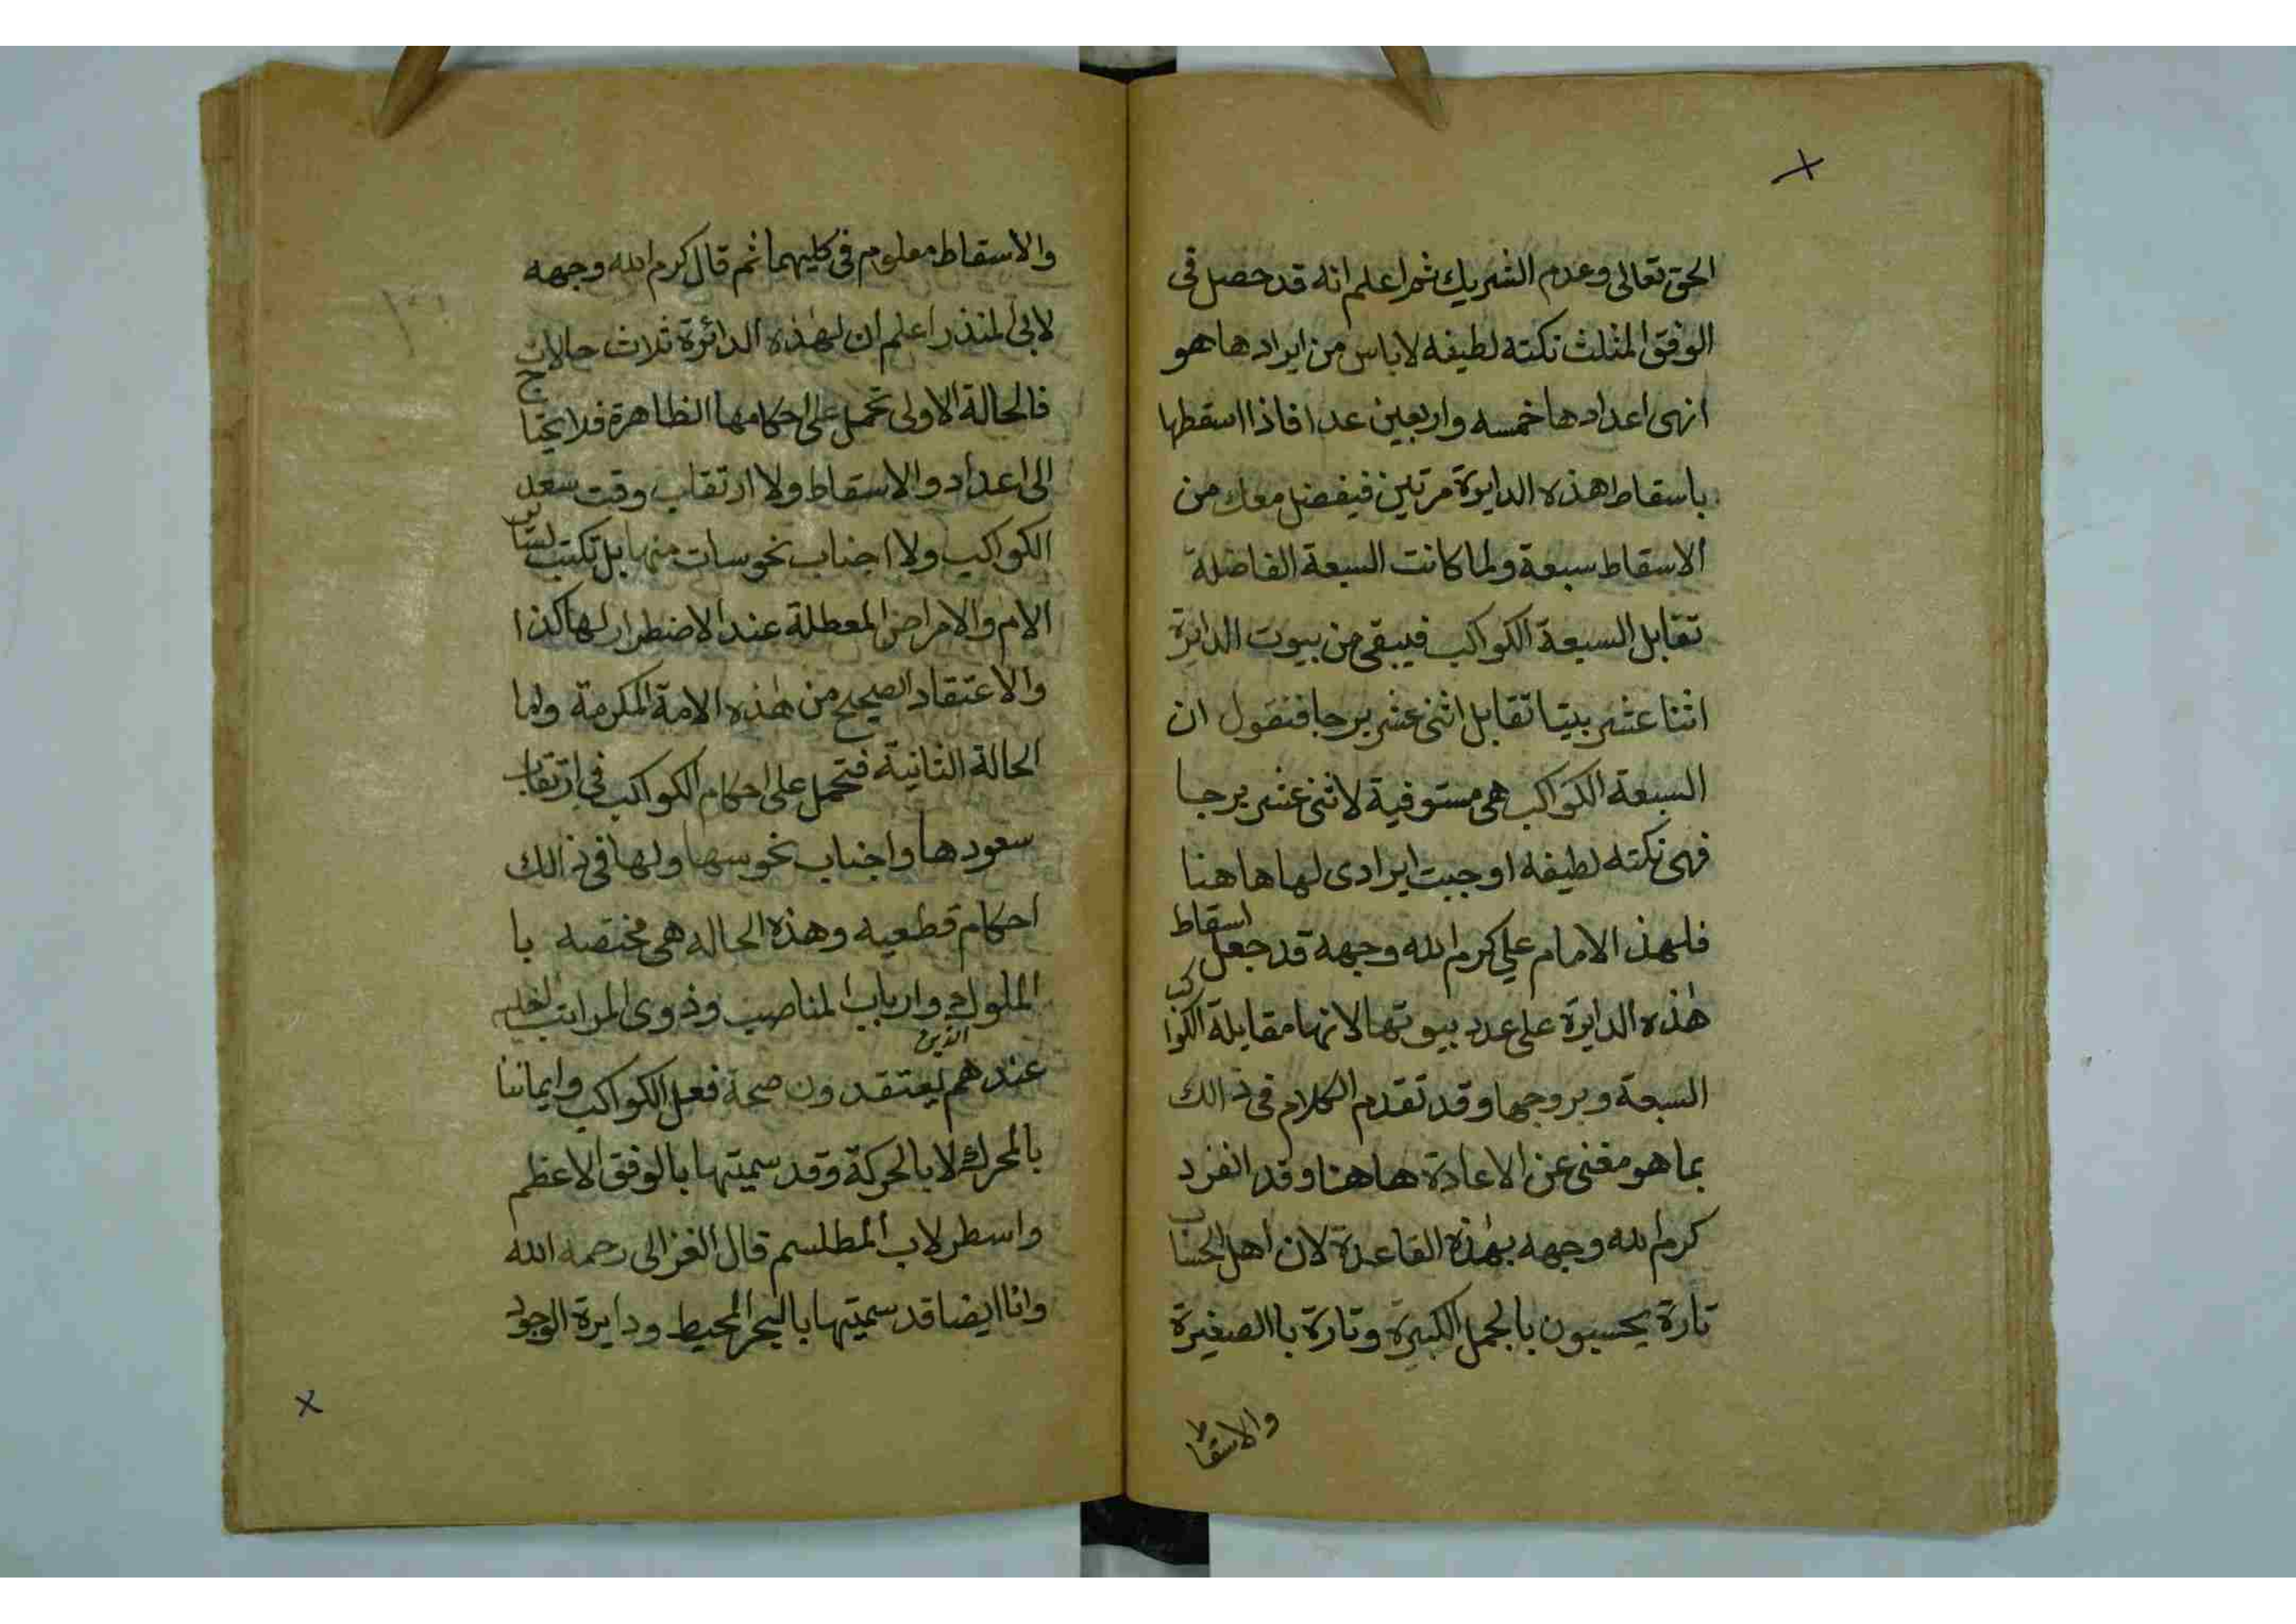 الحق تعالى وعدم الشريك ثم اعلم انه قد حصل فى
الوفق المثلث نكته لطيفه لاباس من ايرادها هو
انهى اعدادها خمسه واربعين عدا فاذا اسقطها
باسقاط هذه الدايرة مرتين فيفضل معك من
الاسقاط سبعة ولما كانت السبعة الفاضلة
تقابل السبعة الكواكب فيبقى من بيوت الدايرة
اثنا عشر بيتا تقابل اثنى عشر برجا فنقول ان
السبعة الكواكب هى مستوفية لاثنى عشر برجا
فهى نكته لطيفه اوجبت ايرادى لها هاهنا
فلهذ الامام علي كرم الله وجهه قد جعل اسقاط
هذه الدايرة على عدد بيوتها لانها مقابلة الكواكب
السبعة وبروجها وقد تقدم الكلام فى ذالك
بما هو مغنى عن الاعادة هاهنا وقد انفرد
كرم الله وجهه بهذه القاعدة لان اهل الحساب
تارة يحسبون بالجمل الكبيرة وتارة باالصغيرة
والاسقاط
والاسقاط معلوم فى كليهما ثم قال كرم الله وجهه
لابى المنذر اعلم ان لهذه الدائرة ثلاث حالات
فالحالة الاولى تحمل على احكامها الظاهرة فلا يحتاج
الى اعداد والاسقاط ولا ارتقاب وقت سعد
الكواكب ولا اجناب نحوسات منها بل تكتب لساير
الام والامراض المعطلة عند الاضطرار لها كذا
والاعتقاد الصحيح من هذه الامة المكرمة واما
الحالة الثانية فتحمل على احكام الكواكب فى ارتقاب
سعودها واجناب نحوسها ولها فى ذالك
احكام قطعيه وهذه الحاله هى مختصه با
الملوك وارباب المناصب وذوى المراتب
عندهم الذين يعتقدون صحة فعل الكواكب وايماننا
بالمحرك لا بالحركة وقد سميتها بالوفق الاعظم
واسطرلاب المطلسم قال الغزالى رحمه الله
وانا ايضا قد سميتها بالبحر المحيط ودايرة الوجود